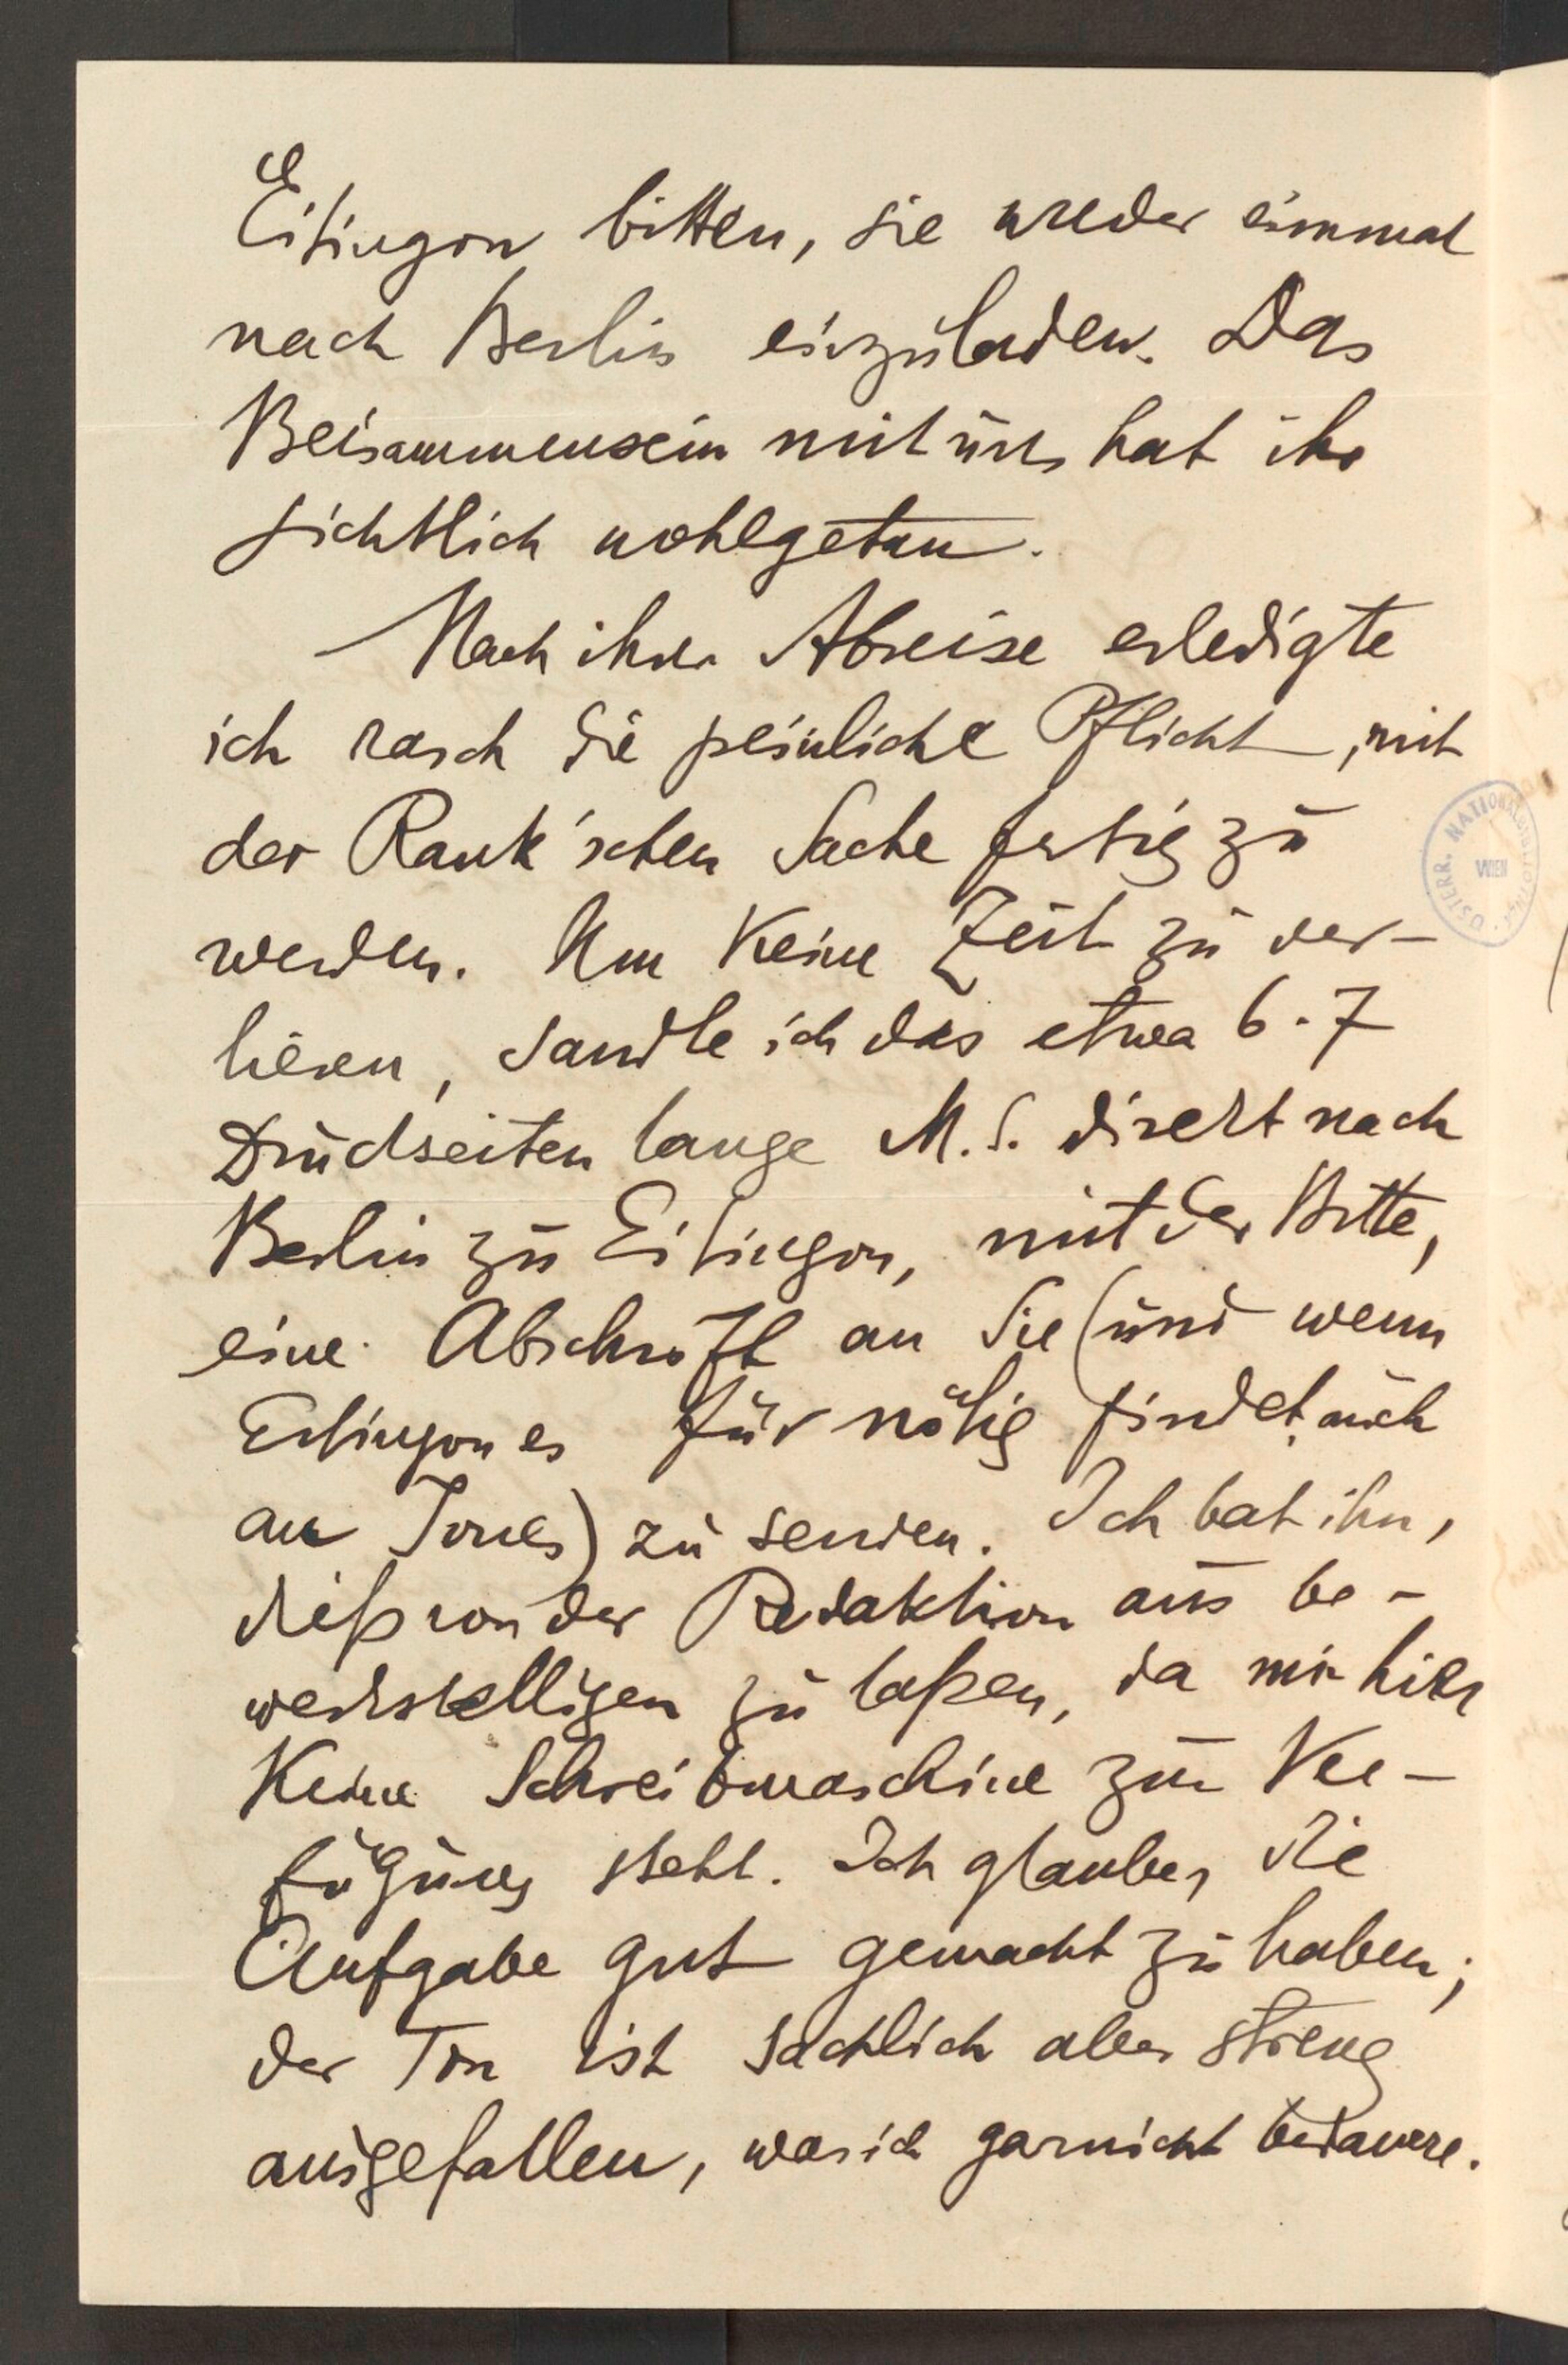 Eitingon bitten, sie wieder einmal
nach Berlin einzuladen. Das
Beisammensein mit uns hat ihr
sichtlich wohlgetan.
Nach ihrer Abreise erledigte
ich rasch die peinliche Pflicht, mit
der Rank'schen Sache fertig zu
werden. Um keine Zeit zu ver-
lieren, sandte ich das etwa 6-7
Druckseiten lange M.S. direkt nach
Berlin zu Eitingon, mit der Bitte,
eine Abschrift an Sie (und wenn
Eitingon es für nötig findet, auch
an Jones) zu senden. Ich bat ihn,
dieß von der Redaktion aus be-
werkstelligen zu laßen, da mir hier
keine Schreibmaschine zur Ver-
fügung steht. Ich glaube, die
Aufgabe gut gemacht zu haben;
der Ton ist sachlich aber streng
ausgefallen, was ich garnicht bedauere.
ÖSTERR. NATIONALBIBLIOTHEK
WIEN